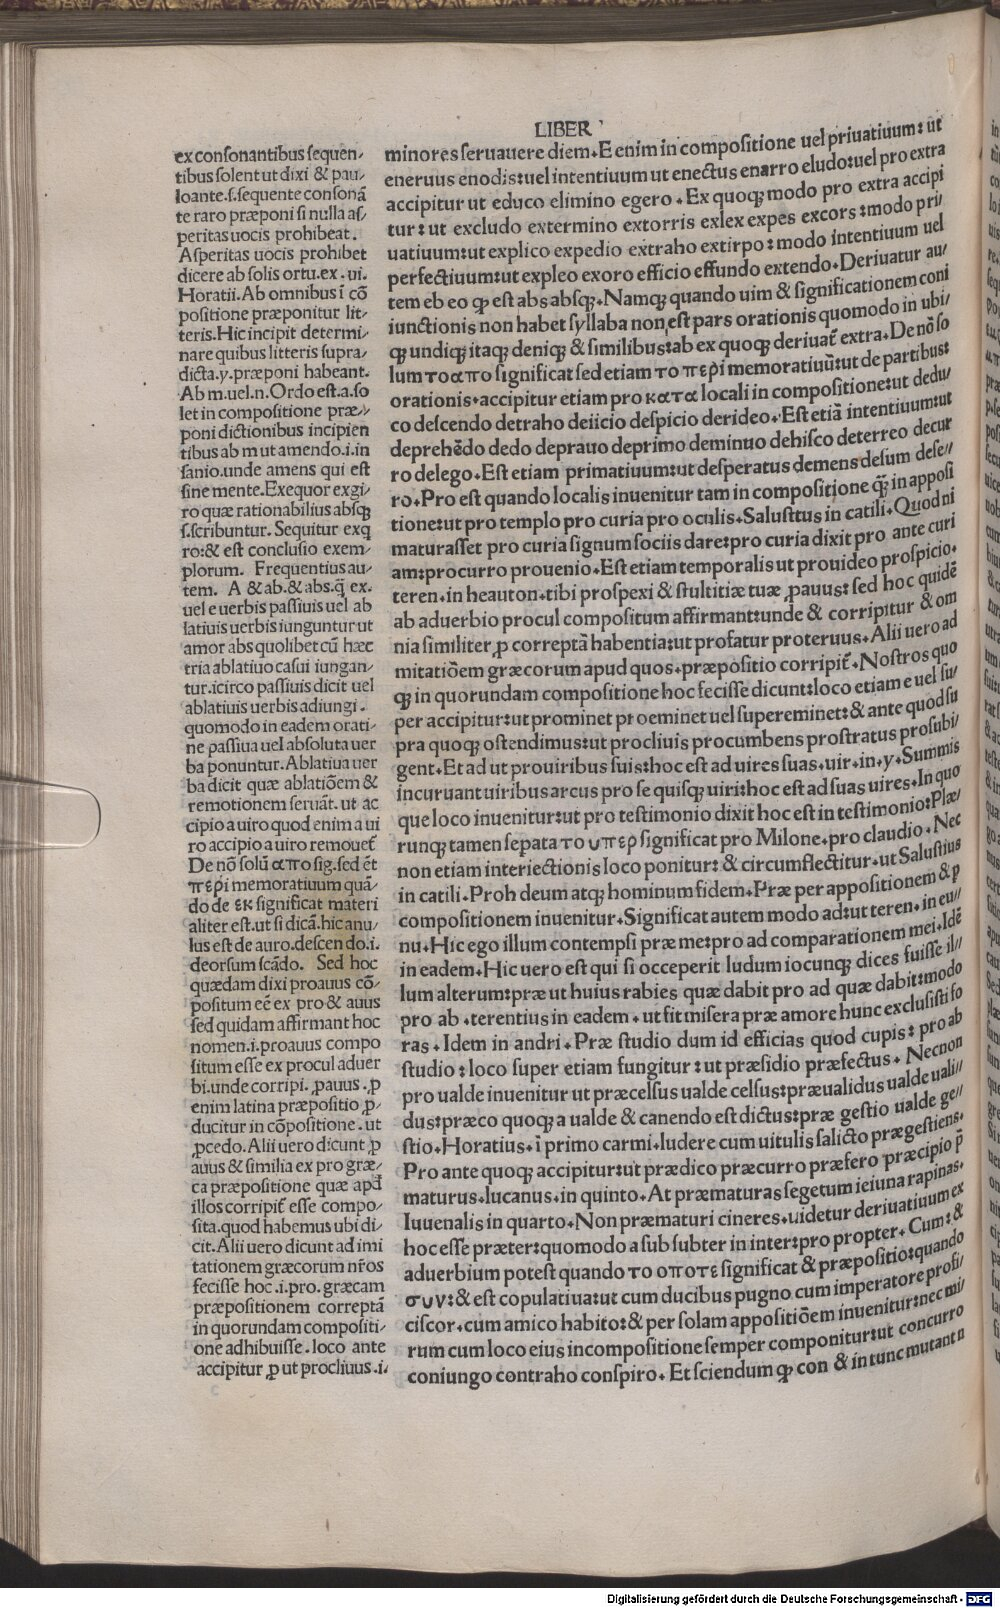 LIBER
ex consonantibus sequen-
tibus solent ut dixi & pau-
loante.s.sequente consonā
te raro præponi si nulla as-
peritas uocis prohibeat.
Asperitas uocis prohibet
dicere ab solis ortu.ex.ui.
Horatii.Ab omnibus ī cō
positione præponitur lit-
teris.Hic incipit determi-
nare quibus litteris supra-
dicta.y.præponi habeant.
Ab m.uel.n.Ordo est.a.so
let in compositione præ-
poni dictionibus incipien
tibus ab m ut amendo.i.in
sanio.unde amens qui est
sine mente.Exequor exgi-
ro quæ rationabilius absqꝫ
s.scribuntur. Sequitur exq
ro:& est conclusio exem-
plorum. Frequentius au-
tem. A & ab.& abs.q̄ ex.
uel e uerbis passiuis uel ab
latiuis uerbis iunguntur ut
amor abs quolibet cū hæc
tria ablatiuo casui iungan-
tur.icirco passiuis dicit uel
ablatiuis uerbis adiungi.
quomodo in eadem orati-
ne passiua uel absoluta uer
ba ponuntur.Ablatiua uer
ba dicit quæ ablatiōem &
remotionem seruāt.ut ac
cipio a uiro quod enim a ui
ro accipio a uiro remouet̄
De nō solū απο sig.sed ēt
περι memoratiuum quā-
do de εκ significat materi
aliter est.ut si dicā.hic anu-
lus est de auro.descendo.i.
deorsum scādo. Sed hoc
quædam dixi proauus cō-
positum eē ex pro & auus
sed quidam affirmant hoc
nomen.i.proauus compo
situm esse ex procul aduer
bi.unde corripi.ꝓauus.ꝓ
enim latina præpositio ꝓ-
ducitur in cōpositione.ut
ꝓcedo.Alii uero dicunt ꝓ
auus & similia ex pro græ-
ca præpositione quæ apd̄
illos corripit̄ esse compo-
sita.quod habemus ubi di-
cit.Alii uero dicunt ad imi
tationem græcorum nr̄os
fecisse hoc.i.pro.græcam
præpositionem correptā
in quorundam compositi-
one adhibuisse.loco ante
accipitur ꝓ ut procliuus.i.
minores seruauere diem.E enim in compositione uel priuatiuum: ut
eneruus enodis:uel intentiuum ut enectus enarro eludo:uel pro extra
accipitur ut educo elimino egero.Ex quoqꝫ modo pro extra accipi
tur: ut excludo extermino extorris exlex expes excors:modo pri-
uatiuum:ut explico expedio extraho extirpo: modo intentiuum uel
perfectiuum:ut expleo exoro efficio effundo extendo.Deriuatur au-
tem eb eo qꝫ est abs absqꝫ.Namqꝫ quando uim & significationem coni
iunctionis non habet syllaba non est pars orationis quomodo in ubi-
qꝫ undiqꝫ itaqꝫ deniqꝫ & similibus:ab ex quoqꝫ deriuat̄ extra.De nō so
lum το απο significat sed etiam το περι memoratiuū:ut de partibus:
orationis.accipitur etiam pro κατα locali in compositione:ut dedu-
co descendo detraho deiicio despicio derideo.Est etiā intentiuum:ut
deprehēdo dedo deprauo deprimo deminuo dehisco deterreo decur
ro delego.Est etiam primatiuum:ut desperatus demens desum dese-
ro.Pro est quando localis inuenitur tam in compositione q̄ in apposi
tione:ut pro templo pro curia pro oculis.Salusttus in catili.Quod ni
maturasset pro curia signum sociis dare:pro curia dixit pro ante curi
am:procurro prouenio.Est etiam temporalis ut prouideo prospicio.
teren.in heauton.tibi prospexi & stultitiæ tuæ ꝓauus: sed hoc quidē
ab aduerbio procul compositum affirmant:unde & corripitur & om
nia similiter ꝓ correptā habentia:ut profatur proteruus.Alii uero ad
mitatiōem græcorum apud quos.præpositio corripit̄.Nostros quo
qꝫ in quorundam compositione hoc fecisse dicunt:loco etiam e uel su-
per accipitur:ut prominet pro eminet uel supereminet:& ante quod su
pra quoqꝫ ostendimus:ut procliuis procumbens prostratus prosubi-
gent.Et ad ut prouiribus suis:hoc est ad uires suas.uir.in.y.Summis
incuruant uiribus arcus pro se quisqꝫ uiri:hoc est ad suas uires.In quo
que loco inuenitur:ut pro testimonio dixit hoc est in testimonio:Plæ-
runqꝫ tamen sepata το υπερ significat pro Milone.pro claudio.Nec
non etiam interiectionis loco ponitur: & circumflectitur.ut Salustius
in catili.Proh deum atqꝫ hominum fidem.Præ per appositionem & p
compositionem inuenitur.Significat autem modo ad:ut teren.in eu-
nu.Hic ego illum contempsi præ me:pro ad comparationem mei.Idē
in eadem.Hic uero est qui si occeperit ludum iocunqꝫ dices fuisse il-
lum alterum:præ ut huius rabies quæ dabit pro ad quæ dabit:modo
pro ab.terentius in eadem.ut fit misera præ amore hunc exclusisti fo
ras.Idem in andri.Præ studio dum id efficias quod cupis: pro ab
studio:loco super etiam fungitur: ut præsidio præfectus. Necnon
pro ualde inuenitur ut præcelsus ualde celsus:præualidus ualde uali-
dus:præco quoqꝫ a ualde & canendo est dictus:præ gestio ualde ge-
stio.Horatius.ī primo carmi.ludere cum uitulis salicto prægestiens.
Pro ante quoqꝫ accipitur:ut prædico præcurro præfero præcipio p̄
maturus.lucanus.in quinto.At præmaturas segetum ieiuna rapinas.
Iuuenalis in quarto.Non præmaturi cineres.uidetur deriuatiuum ex
hoc esse præter:quomodo a sub subter in inter:pro propter. Cum: &
aduerbium potest quando το οποτε significat & præpositio:quando
συν:& est copulatiua:ut cum ducibus pugno cum imperatore profi-
ciscor.cum amico habito:& per solam appositiōem inuenitur:nec mi-
rum cum loco eius in compositione semper componitur:ut concurro
coniungo contraho conspiro.Et sciendum qꝫ con & in tunc mutant n
Digitalisierung gefördert durch die Deutsche Forschungsgemeinschaft - DFG